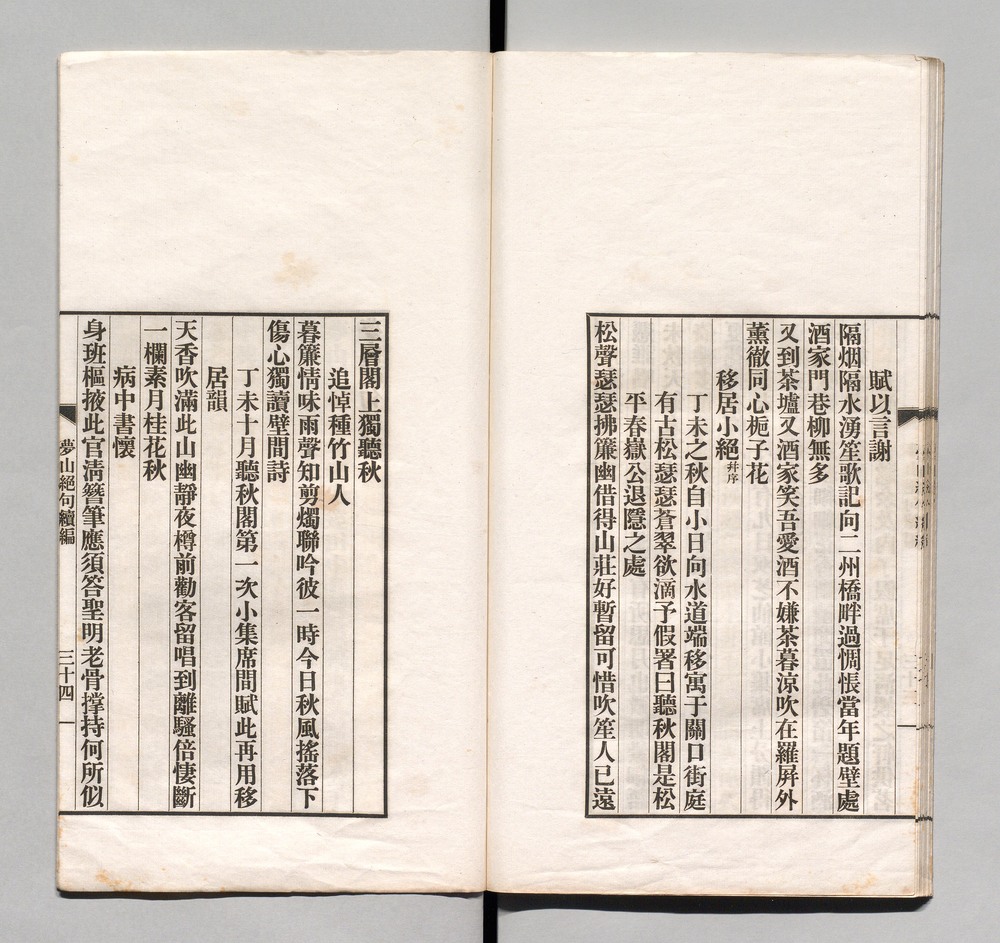 賦以言謝
隔烟隔水湧笙歌記向二州橋畔過惆悵當年題壁處
酒家門巷柳無多
又到茶壚又酒家笑吾愛酒不嫌茶暮涼吹在羅屏外
薰徹同心梔子花
移居小絕幷序
丁未之秋自小日向水道端移寓于關口街庭
有古松瑟瑟蒼翠欲滴予假署曰聽秋閣是松
平春嶽公退隱之處
松聲瑟瑟拂簾幽借得山莊好暫留可惜吹笙人已遠
三層閣上獨聽秋
追悼種竹山人
暮簾情味雨聲知剪燭聯吟彼一時今日秋風搖落下
傷心獨讀壁間詩
丁未十月聽秋閣第一次小集席間賦此再用移
居韻
天香吹滿此山幽靜夜樽前勸客留唱到離騷倍悽斷
一欄素月桂花秋
病中書懷
身班樞掖此官淸簪筆應須答聖明老骨撐持何所似
夢山絕句續編
三十四